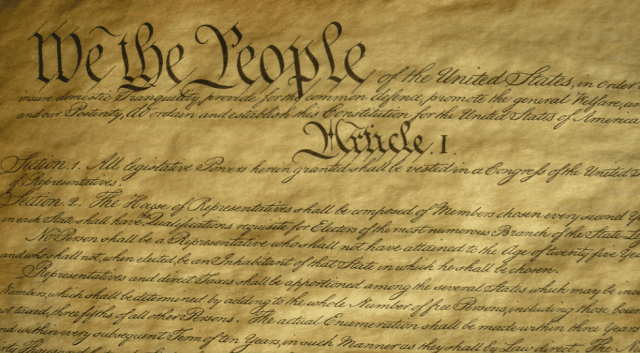 We the People of the United States, in Order
insure domestic Tranquility, provide for the common defence, promote the general Welfare, and
and our Posterity, do ordain and establish this Constitution for the United States of America
Article. I.
Section. 1. All legislative Powers herein granted shall be vested in a Congress of the United
of Representatives.
Section. 2. The House of Representatives shall be composed of Members chosen every second
in each State shall have the Qualifications requisite for Electors of the most numerous Branch of the State
No Person shall be a Representative who shall not have attained to the Age of twenty five
and who shall not, when elected, be an Inhabitant of that State in which he shall be chosen.
Representatives and direct Taxes shall be apportioned among the several States which may be
Numbers, which shall be determined by adding to the whole Number of free Persons, including those
not taxed, three fifths of all other Persons. The actual Enumeration shall be made within three Years
and within every subsequent Term of ten Years, in such Manner as they shall by Law direct. The